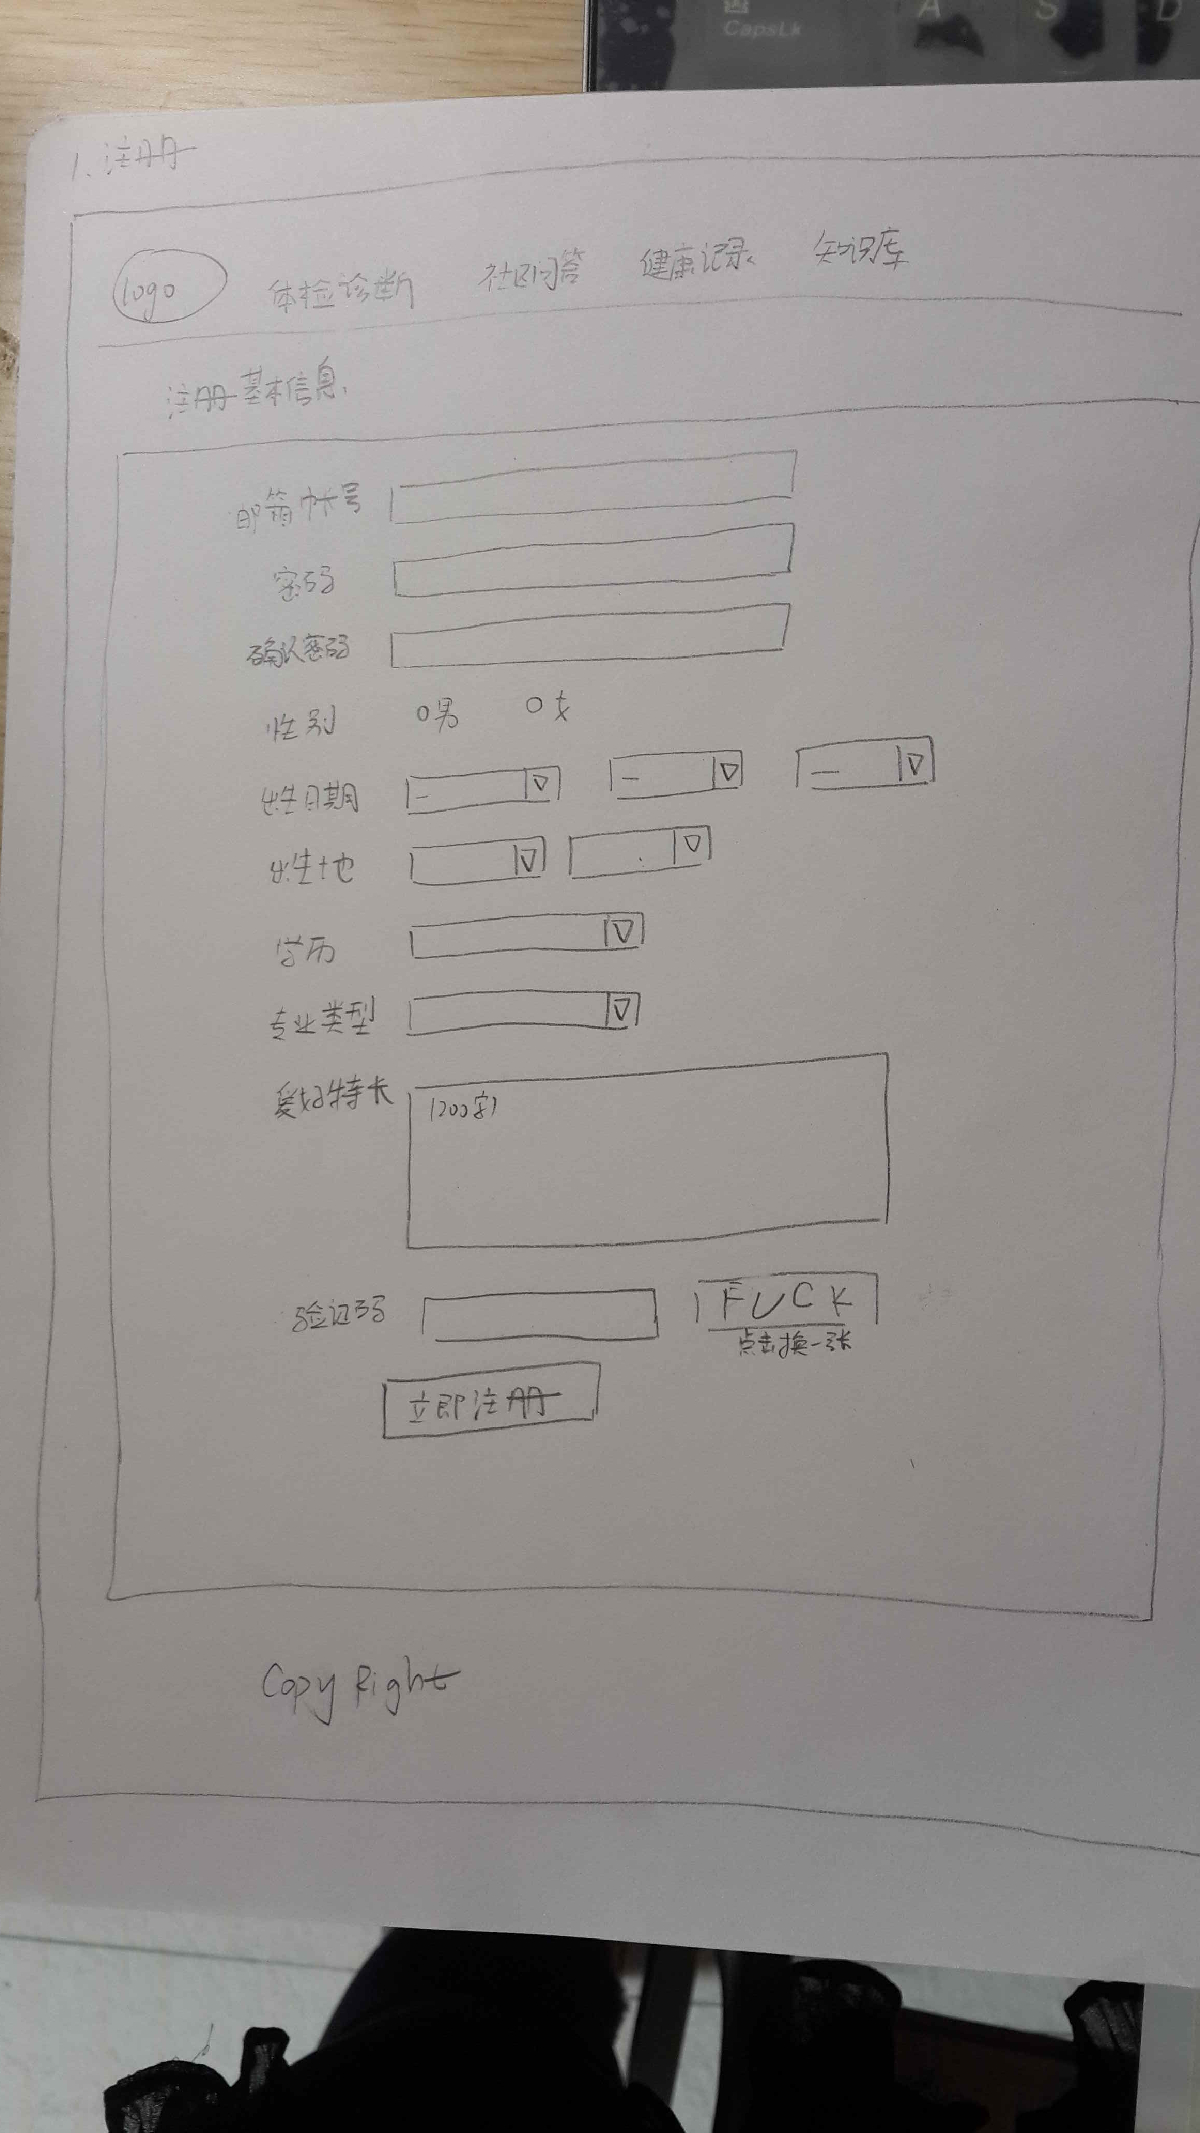 CapsLk A S D
1、注册
logo 体检诊断 社区问答 健康记录 知识库
注册基本信息.
邮箱帐号
密码
确认密码
性别 男 女
出生日期
出生地
学历
专业类型
爱好特长
(200字)
验证码 FUCK
点击换一张
立即注册
Copy Right